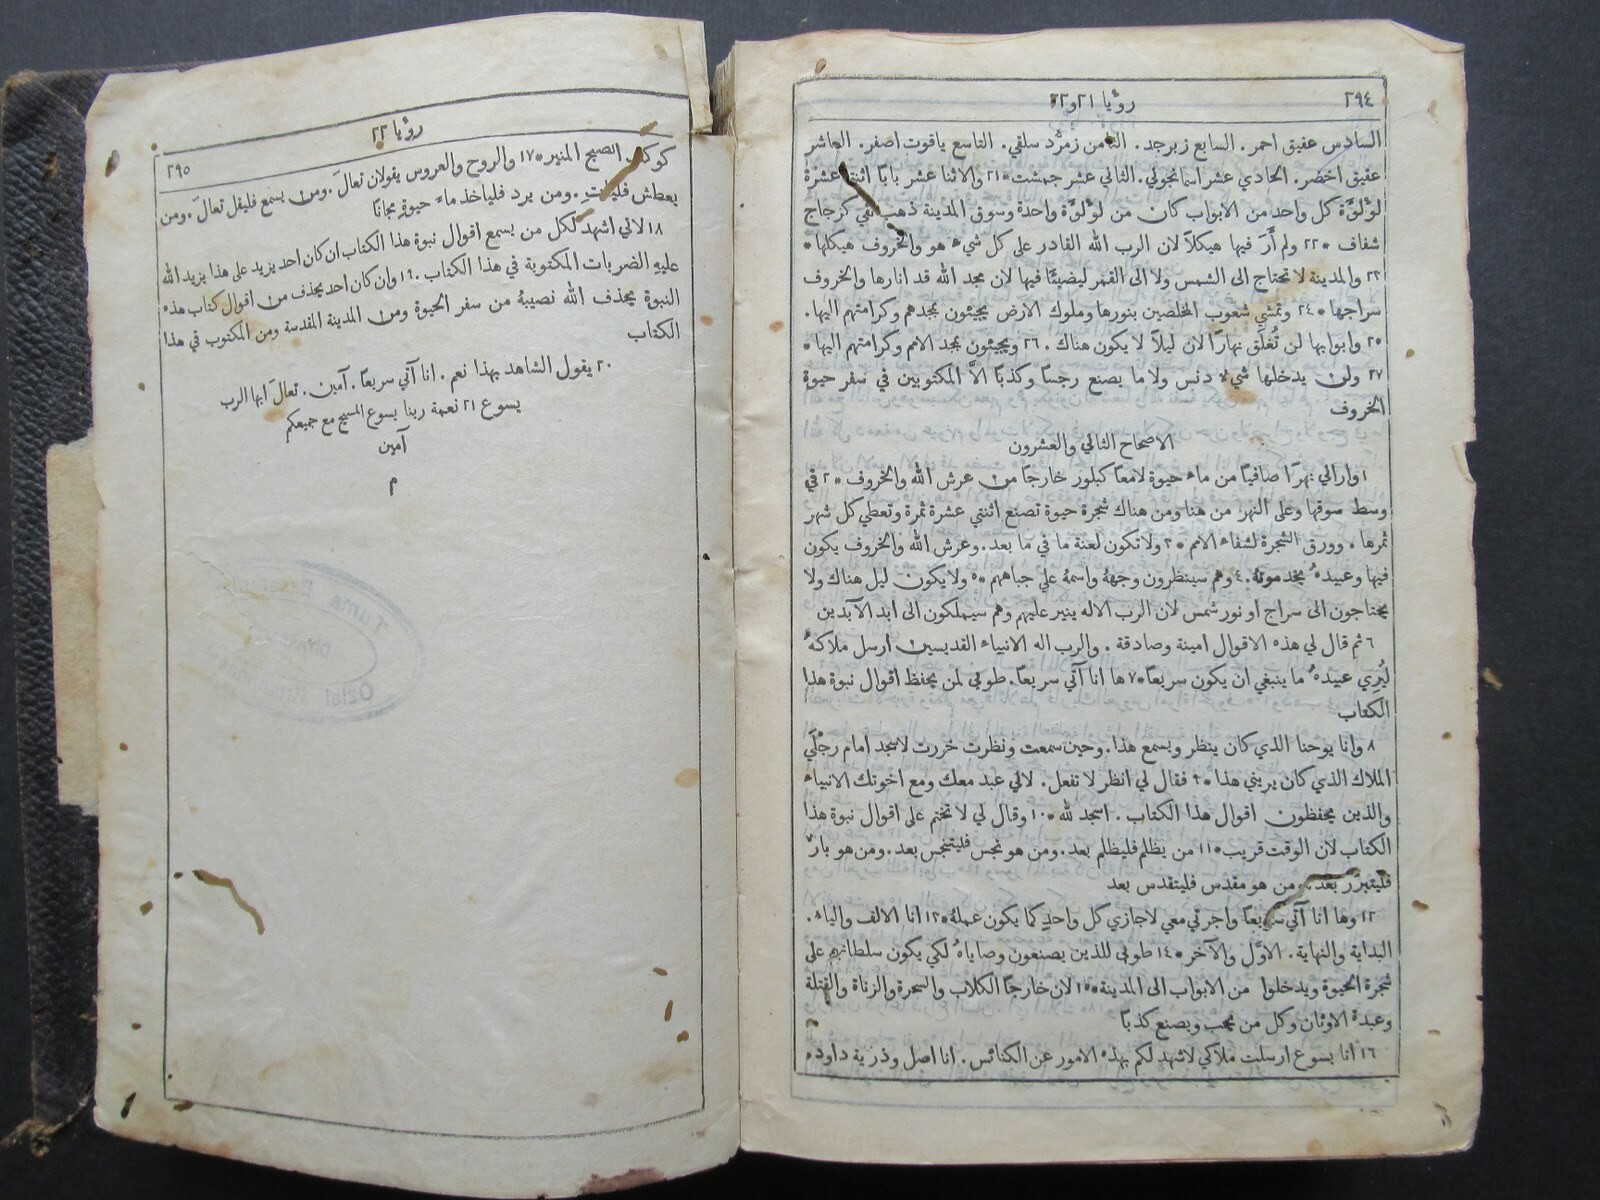 ٢٩٤
رؤيا ٢١ و٢٢
السادس عقيق احمر. السابع زبرجد. الثامن زمرّد سلقي. التاسع ياقوت اصفر. العاشر
عقيق اخضر. الحادي عشر اسمانجوني. الثاني عشر جمشت * ٢١ والاثنا عشر بابًا اثنتا عشرة
لؤلؤَّة كل واحد من الابواب كان من لؤلؤَّة واحدة وسوق المدينة ذهب نقي كزجاج
شفاف * ٢٢ ولم أَرَ فيها هيكلًا لان الرب الله القادر على كل شيء هو والخروف هيكلها *
٢٣ والمدينة لا تحتاج الى الشمس ولا الى القمر ليضيئا فيها لان مجد الله قد انارها والخروف
سراجها * ٢٤ وتمشي شعوب المخلصين بنورها وملوك الارض يجيئون بمجدهم وكرامتهم اليها.
٢٥ وابوابها لن تُغلَق نهارًا لان ليلًا لا يكون هناك. ٢٦ ويجيئون بمجد الامم وكرامتهم اليها *
٢٧ ولن يدخلها شيء دنس ولا ما يصنع رجسًا وكذبًا الاَّ المكتوبين في سفر حيوة
الخروف
الاصحاح الثاني والعشرون
١ واراني نهرًا صافيًا من ماء حيوة لامعًا كبلور خارجًا من عرش الله والخروف * ٢ في
وسط سوقها وعلى النهر من هنا ومن هناك شجرة حيوة تصنع اثنتي عشرة ثمرة وتعطي كل شهر
ثمرها. وورق الشجرة لشفاء الامم * ٣ ولا تكون لعنة ما في ما بعد. وعرش الله والخروف يكون
فيها وعبيدهُ يخدمونهُ. ٤ وهم سينظرون وجههُ واسمهُ على جباههم * ٥ ولا يكون ليل هناك ولا
يحتاجون الى سراج او نور شمس لان الرب الاله ينير عليهم وهم سيملكون الى ابد الآبدين
٦ ثم قال لي هذه الاقوال امينة وصادقة. والرب اله الانبياء القديسين ارسل ملاكهُ
ليُرِي عبيدهُ ما ينبغي ان يكون سريعًا * ٧ ها انا آتي سريعًا. طوبى لمن يحفظ اقوال نبوة هذا
الكتاب
٨ وانا يوحنا الذي كان ينظر ويسمع هذا. وحين سمعت ونظرت خررت لاسجد امام رجْلَي
الملاك الذي كان يريني هذا * ٩ فقال لي انظر لا تفعل. لاني عبد معك ومع اخوتك الانبياء
والذين يحفظون اقوال هذا الكتاب. اسجد لله * ١٠ وقال لي لا تختم على اقوال نبوة هذا
الكتاب لان الوقت قريب * ١١ من يظلم فليظلم بعد. ومن هو نجس فليتنجس بعد. ومن هو بارّ
فليتبرَّر بعد. ومن هو مقدس فليتقدس بعد
١٢ وها انا آتي سريعًا واجرتي معي لاجازي كل واحدٍ كما يكون عملهُ * ١٣ انا الالف والياء.
البداية والنهاية. الاوَّل والآخر * ١٤ طوبى للذين يصنعون وصاياهُ لكي يكون سلطانهم على
شجرة الحيوة ويدخلوا من الابواب الى المدينة * ١٥ لان خارجًا الكلاب والسحرة والزناة والقتلة
وعبدة الاوثان وكل من يحب ويصنع كذبًا
١٦ انا يسوع ارسلت ملاكي لاشهد لكم بهذه الامور عن الكنائس. انا اصل وذرية داود.
رؤيا ٢٢
٢٩٥
كوكب الصبح المنير * ١٧ والروح والعروس يقولان تعالَ. ومن يسمع فليقل تعالَ. ومن
يعطش فليأتِ. ومن يرد فلياخذ ماءَ حيوةٍ مجانًا
١٨ لاني اشهد لكل من يسمع اقوال نبوة هذا الكتاب ان كان احد يزيد على هذا يزيد الله
عليهِ الضربات المكتوبة في هذا الكتاب. ١٩ وان كان احد يحذف من اقوال كتاب هذه
النبوة يحذف الله نصيبهُ من سفر الحيوة ومن المدينة المقدسة ومن المكتوب في هذا
الكتاب
٢٠ يقول الشاهد بهذا نعم. انا آتي سريعًا. آمين. تعالَ ايها الرب
يسوع ٢١ نعمة ربنا يسوع المسيح مع جميعكم
آمين
م